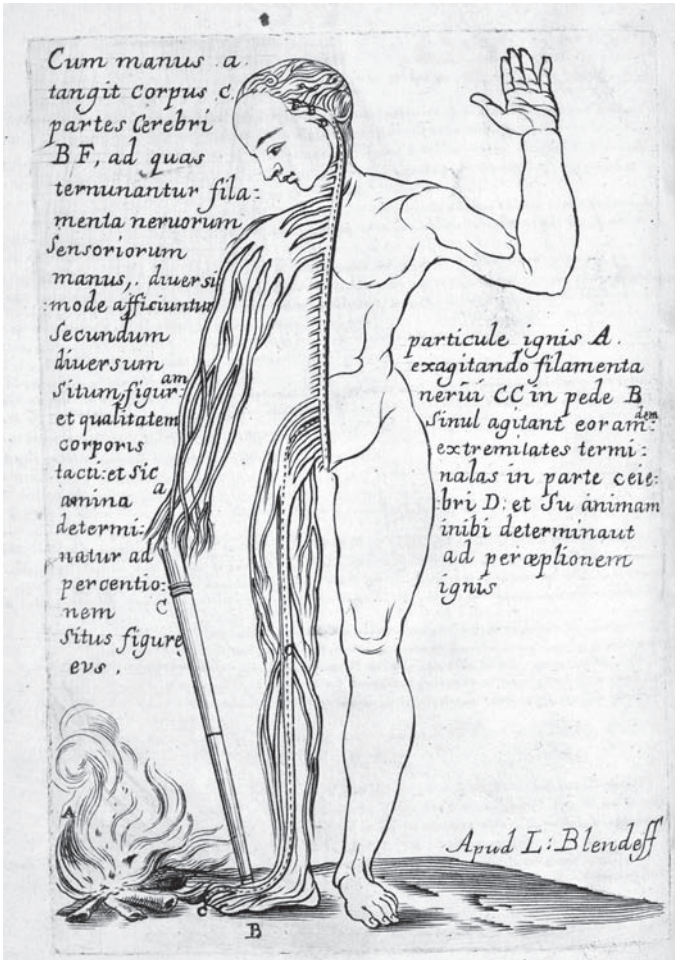 Cum manus a
tangit corpus C
partes Cerebri
B F, ad quas
ternunantur fila:
menta neruorum
Sensoriorum
manus,. diversi
:mode afficiuntur
Secundum
diversum
Situm, figur:am
et qualitatem
corporis
tacti: et Sic
amina
determi:
natur ad
percentio:
nem
Situs figure
evs.
a
C
particule ignis A.
exagitando filamenta
neruii CC in pede B
Sinul agitant eoram:dem
extremitates termi:
nalas in parte ceie:
bri D: et Su animam
inibi determinaut
ad peræptionem
ignis
A
B
c
Apud L: Blendeff